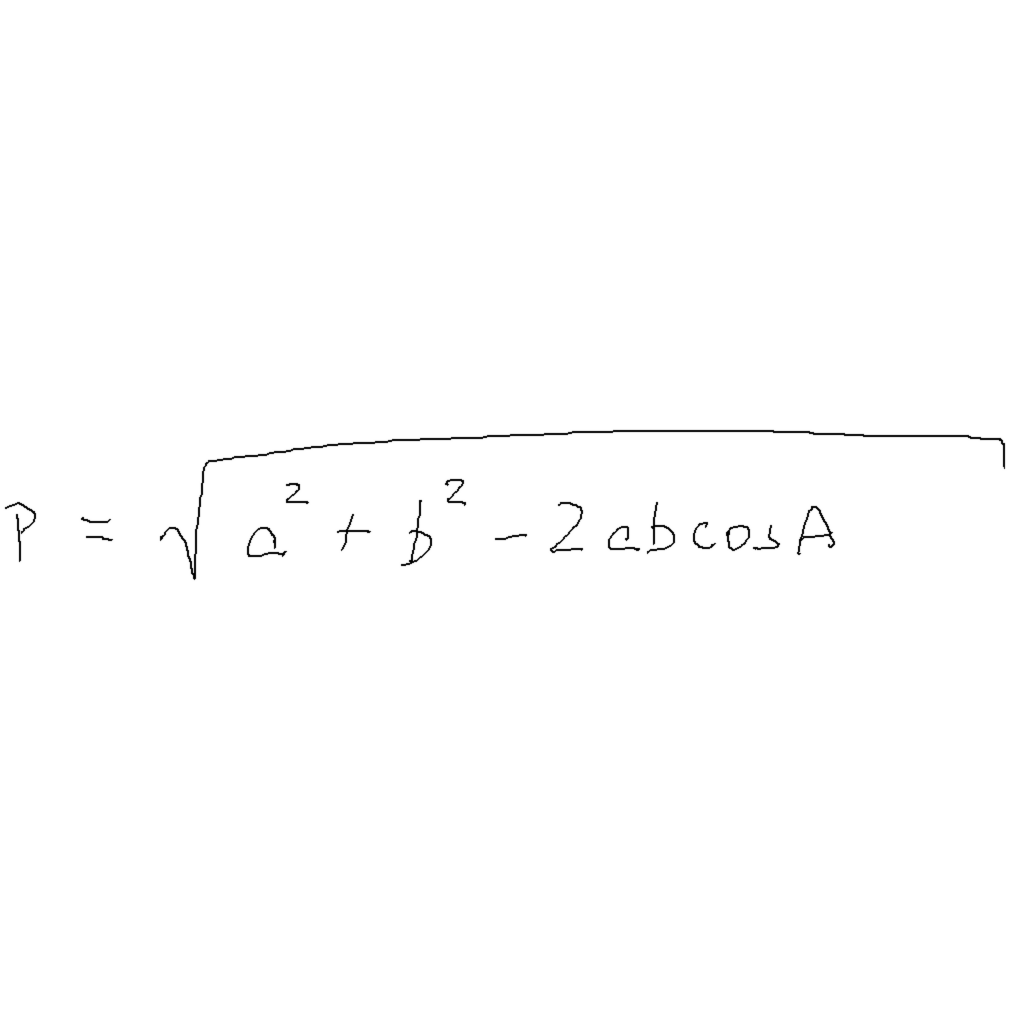 P = √(a² + b² - 2abcosA)